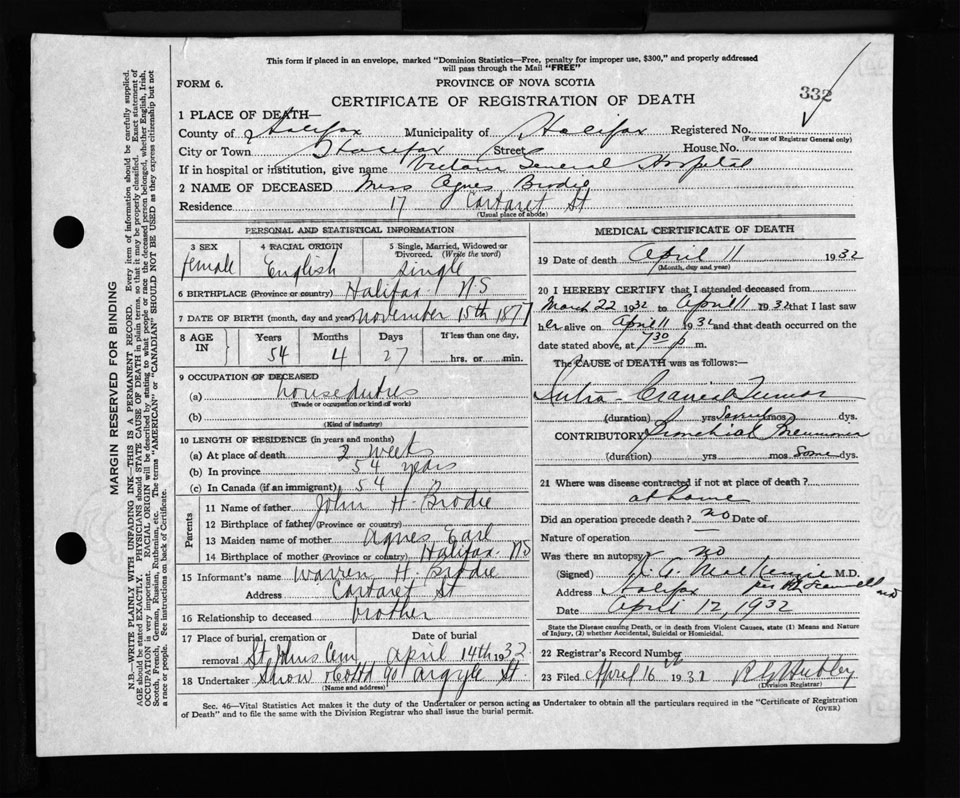 This form if placed in an envelope, marked "Dominion Statistics—Free, penalty for improper use, $300," and properly addressed
will pass through the Mail "FREE"
FORM 6.
PROVINCE OF NOVA SCOTIA
332
CERTIFICATE OF REGISTRATION OF DEATH
1 PLACE OF DEATH—
County of Halifax Municipality of Halifax Registered No.
(For use of Registrar General only)
City or Town Halifax Street House No.
If in hospital or institution, give name Victoria General Hospital
2 NAME OF DECEASED Miss Agnes Brodie
Residence 17 Cartaret St
(Usual place of abode)
PERSONAL AND STATISTICAL INFORMATION
3 SEX 4 RACIAL ORIGIN 5 Single, Married, Widowed or Divorced. (Write the word)
female English Single
6 BIRTHPLACE (Province or country) Halifax NS
7 DATE OF BIRTH (month, day and year) November 15th 1877
8 AGE IN Years Months Days If less than one day,
54 4 27 hrs. or min.
9 OCCUPATION OF DECEASED
(a) houseduties
(Trade or occupation or kind of work)
(b)
(Kind of industry)
10 LENGTH OF RESIDENCE (in years and months)
(a) At place of death 3 weeks
(b) In province 54 years
(c) In Canada (if an immigrant) 54
Parents
11 Name of father John H. Brodie
12 Birthplace of father (Province or country)
13 Maiden name of mother Agnes Earl
14 Birthplace of mother (Province or country) Halifax NS
15 Informant's name Warren H. Brodie
Address Cartaret St
16 Relationship to deceased brother
17 Place of burial, cremation or removal Date of burial
St Johns Cem April 14th 1932
18 Undertaker Snow & Co Ltd 90 Argyle St.
(Name and address)
MEDICAL CERTIFICATE OF DEATH
19 Date of death April 11 1932
(Month, day and year)
20 I HEREBY CERTIFY that I attended deceased from
March 22 1932 to April 11 1932 that I last saw
her alive on April 11 1932 and that death occurred on the
date stated above, at 7 30 p m.
The CAUSE OF DEATH was as follows:—
Intra-Cranial Tumor
(duration) yrs. Several mos. dys.
CONTRIBUTORY Bronchial Pneumonia
(duration) yrs mos Some dys.
21 Where was disease contracted if not at place of death?
at home
Did an operation precede death? no Date of
Nature of operation —
Was there an autopsy? no
(Signed) MacKenzie M.D.
Address Halifax per
Date April 12, 1932
State the Disease causing Death, or in death from Violent Causes, state (1) Means and Nature of Injury, (2) whether Accidental, Suicidal or Homicidal.
22 Registrar's Record Number
23 Filed April 16 1932
(Division Registrar)
Sec. 46—Vital Statistics Act makes it the duty of the Undertaker or person acting as Undertaker to obtain all the particulars required in the "Certificate of Registration
of Death" and to file the same with the Division Registrar who shall issue the burial permit.
(OVER)
MARGIN RESERVED FOR BINDING
N.B.—WRITE PLAINLY WITH UNFADING INK—THIS IS A PERMANENT RECORD. Every item of information should be carefully supplied.
AGE should be stated EXACTLY. PHYSICIANS should STATE CAUSE OF DEATH in plain terms, so that it may be properly classified. Exact statement of
OCCUPATION is very important. RACIAL ORIGIN will be described by stating to what people or race the deceased person belonged, whether English, Irish,
Scotch, French, German, Russian, Ruthenian, etc. The terms "AMERICAN" or "CANADIAN" SHOULD NOT BE USED as they express citizenship but not
a race or people. See instructions on back of Certificate.